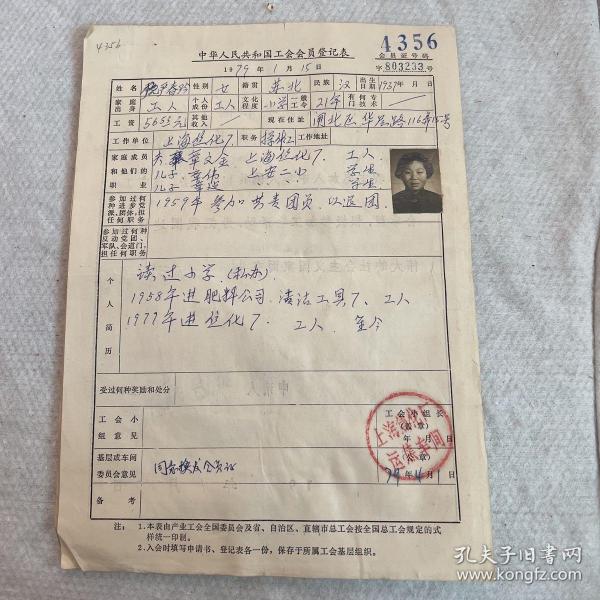 4356
中华人民共和国工会会员登记表
4356
会员证号码
1979年1月15日
字803233号
姓名 性别 女 籍贯 苏北 民族 汉 出生日期 1937年 月 日
家庭出身 工人 个人成份 工人 文化程度 小学 一般工令 21年 有何专门技术
工资 56.53元 其他收入 现在住址 闸北区华
工作单位 上海 职务 操作工 工作地址
家庭成员和他们的职业
夫 章文金 上海 工人
儿子 章伟 上安二小 学生
儿子 学生
参加过何种进步党派、团体,担任何职务
1959年参加共青团员 以退团
参加过何种反动党团、军队、会道门,担任何职务
个人简历
读过小学(私办)
1958年进肥料公司 清洁工具厂 工人
1977年进 工人 至今
受过何种奖励和处分
工会小组意见
工会小组长
(盖章)
年 月 日
基层或车间委员会意见
同意换发会员证
(公章)
79年4月1日
备考
注:1.本表由产业工会全国委员会及省、自治区、直辖市总工会按全国总工会规定的式
样统一印制。
2.入会时填写申请书、登记表各一份,保存于所属工会基层组织。
孔夫子旧书网
www.kongfz.com